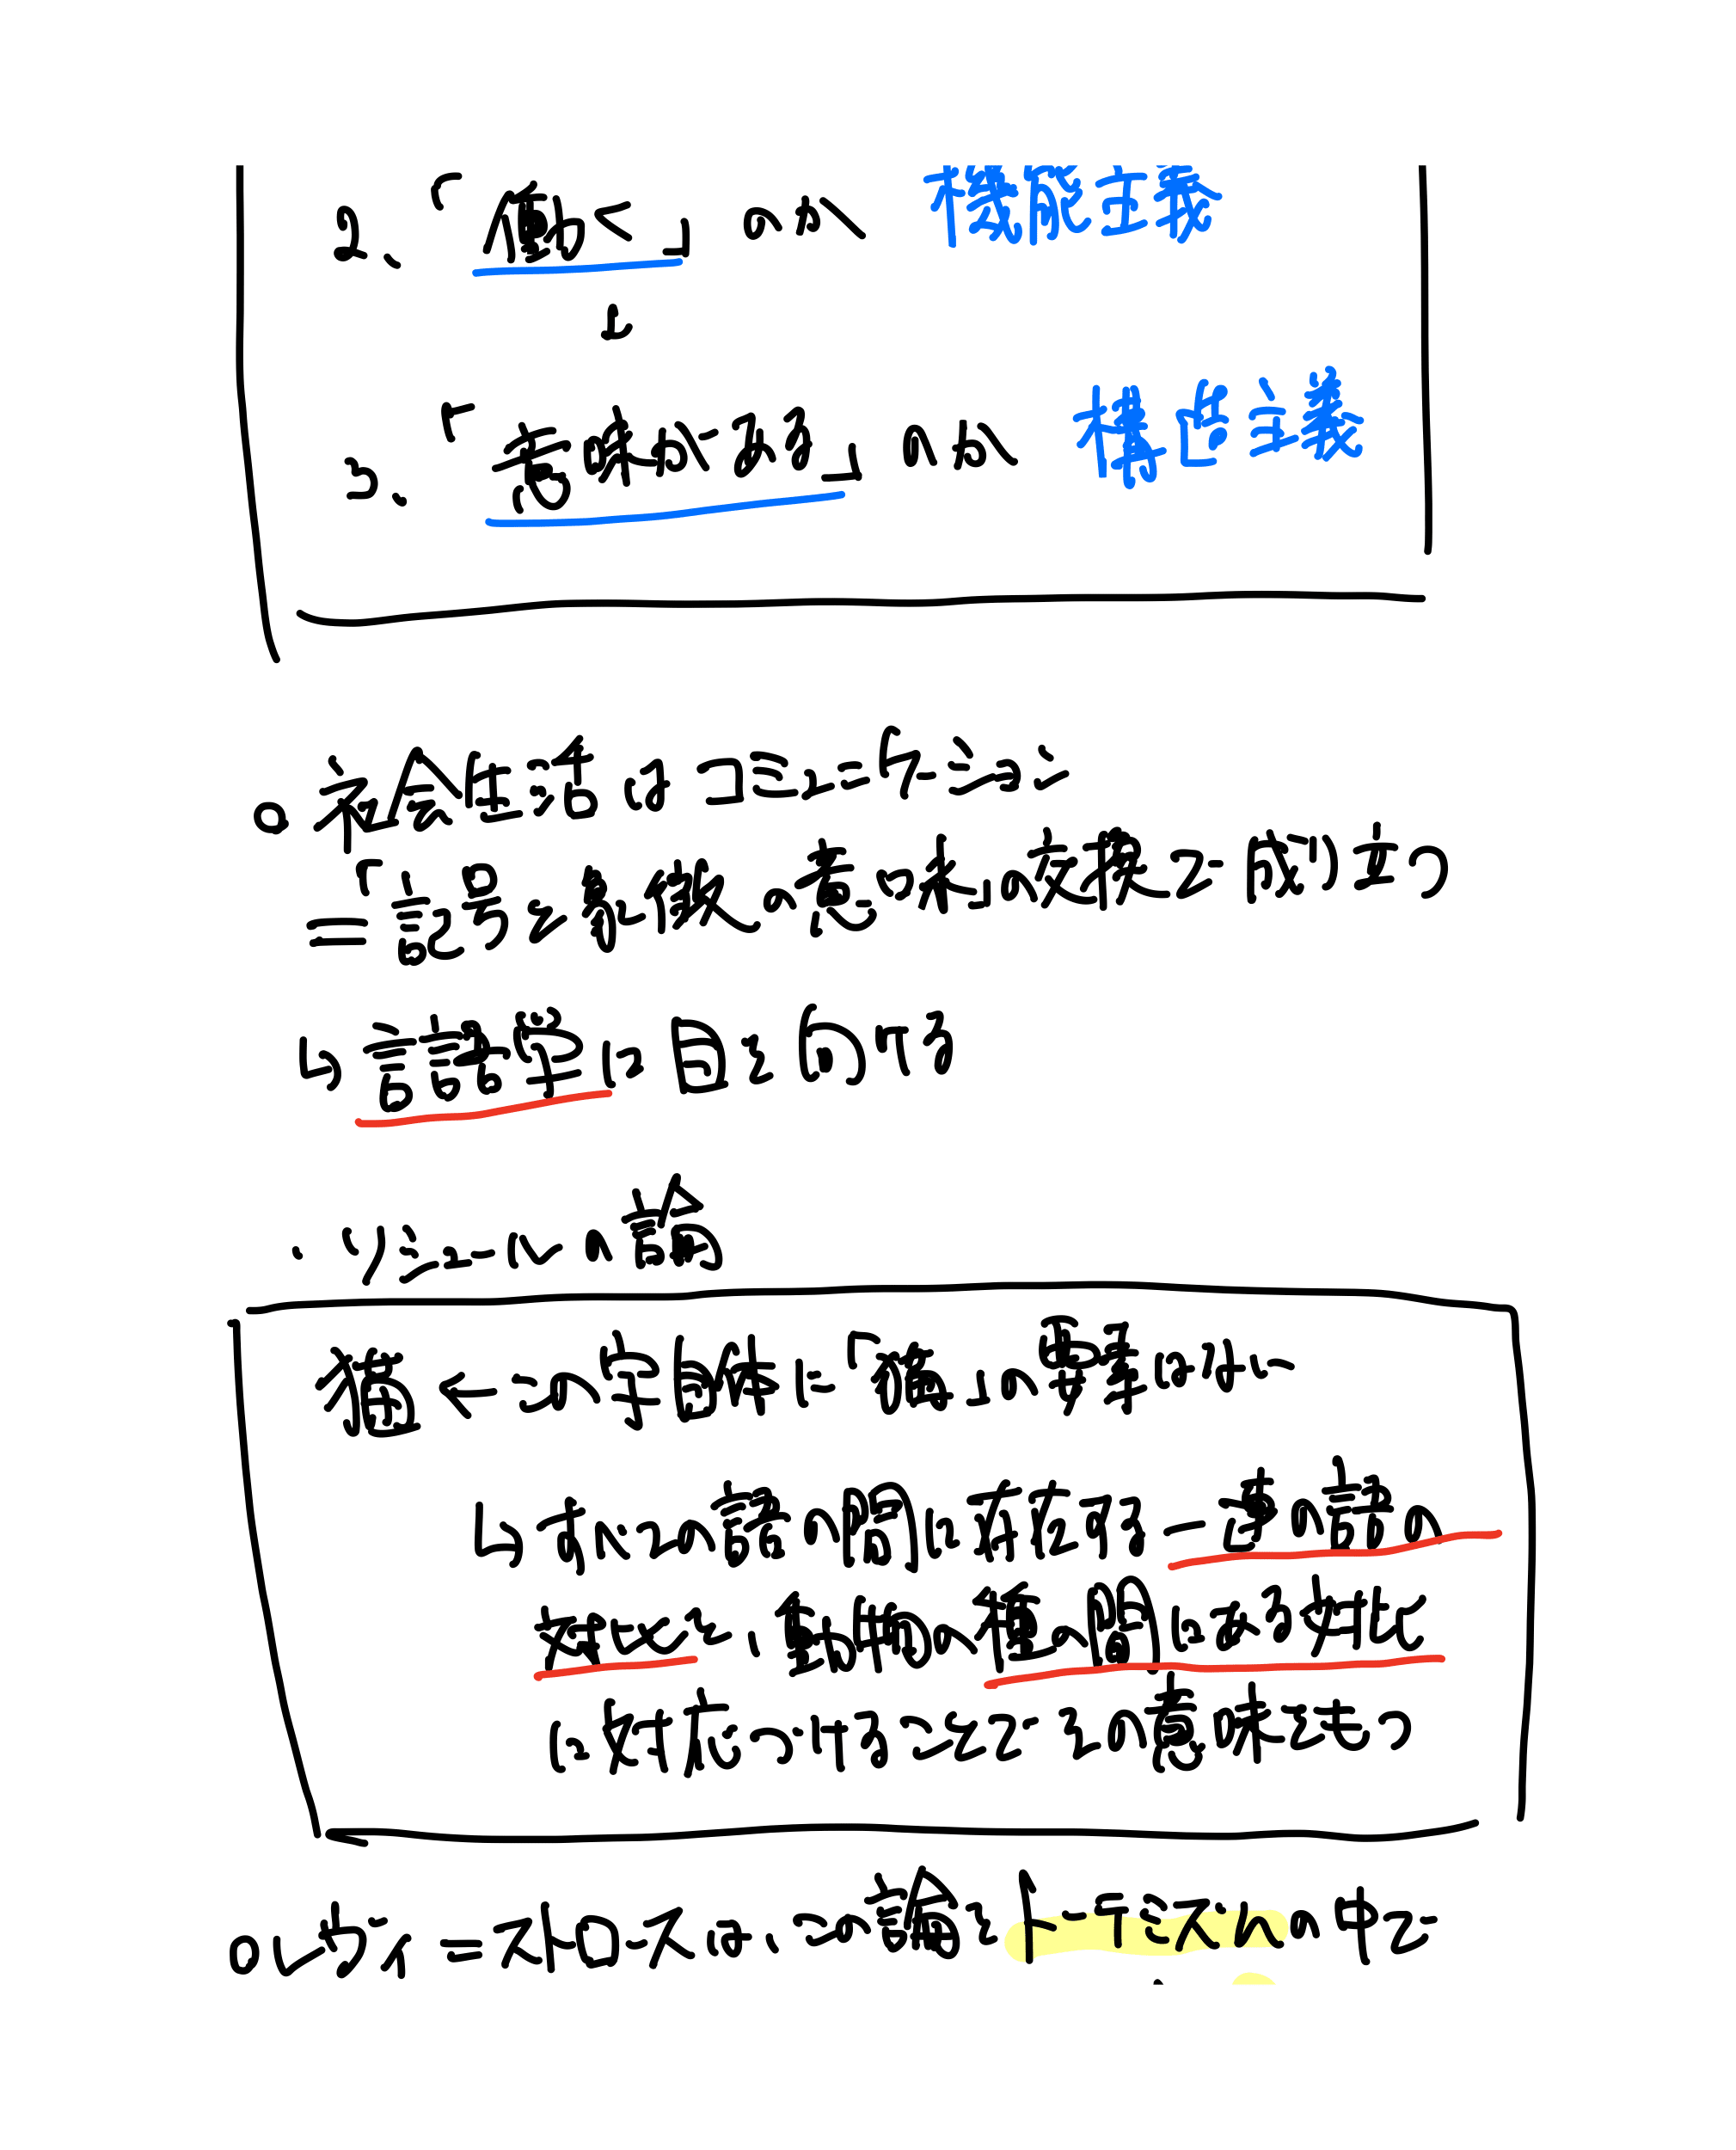 2、「働く」のか 機能主義
↓
3、「意味がある」のか 構造主義
○社会生活はコミュニケーション
=「記号と象徴の意味」の交換で成り立つ
↳ 言語学に目を向ける
・ソシュールの論
猫 ← この字自体に「猫」の要素はない
↳ すべての語の間に存在する一連の語の
対比を、動物の種の間にある対比
に対応づけることでその意味をもつ
○レヴィ=ストロースは、この論をトーテミズムの中で